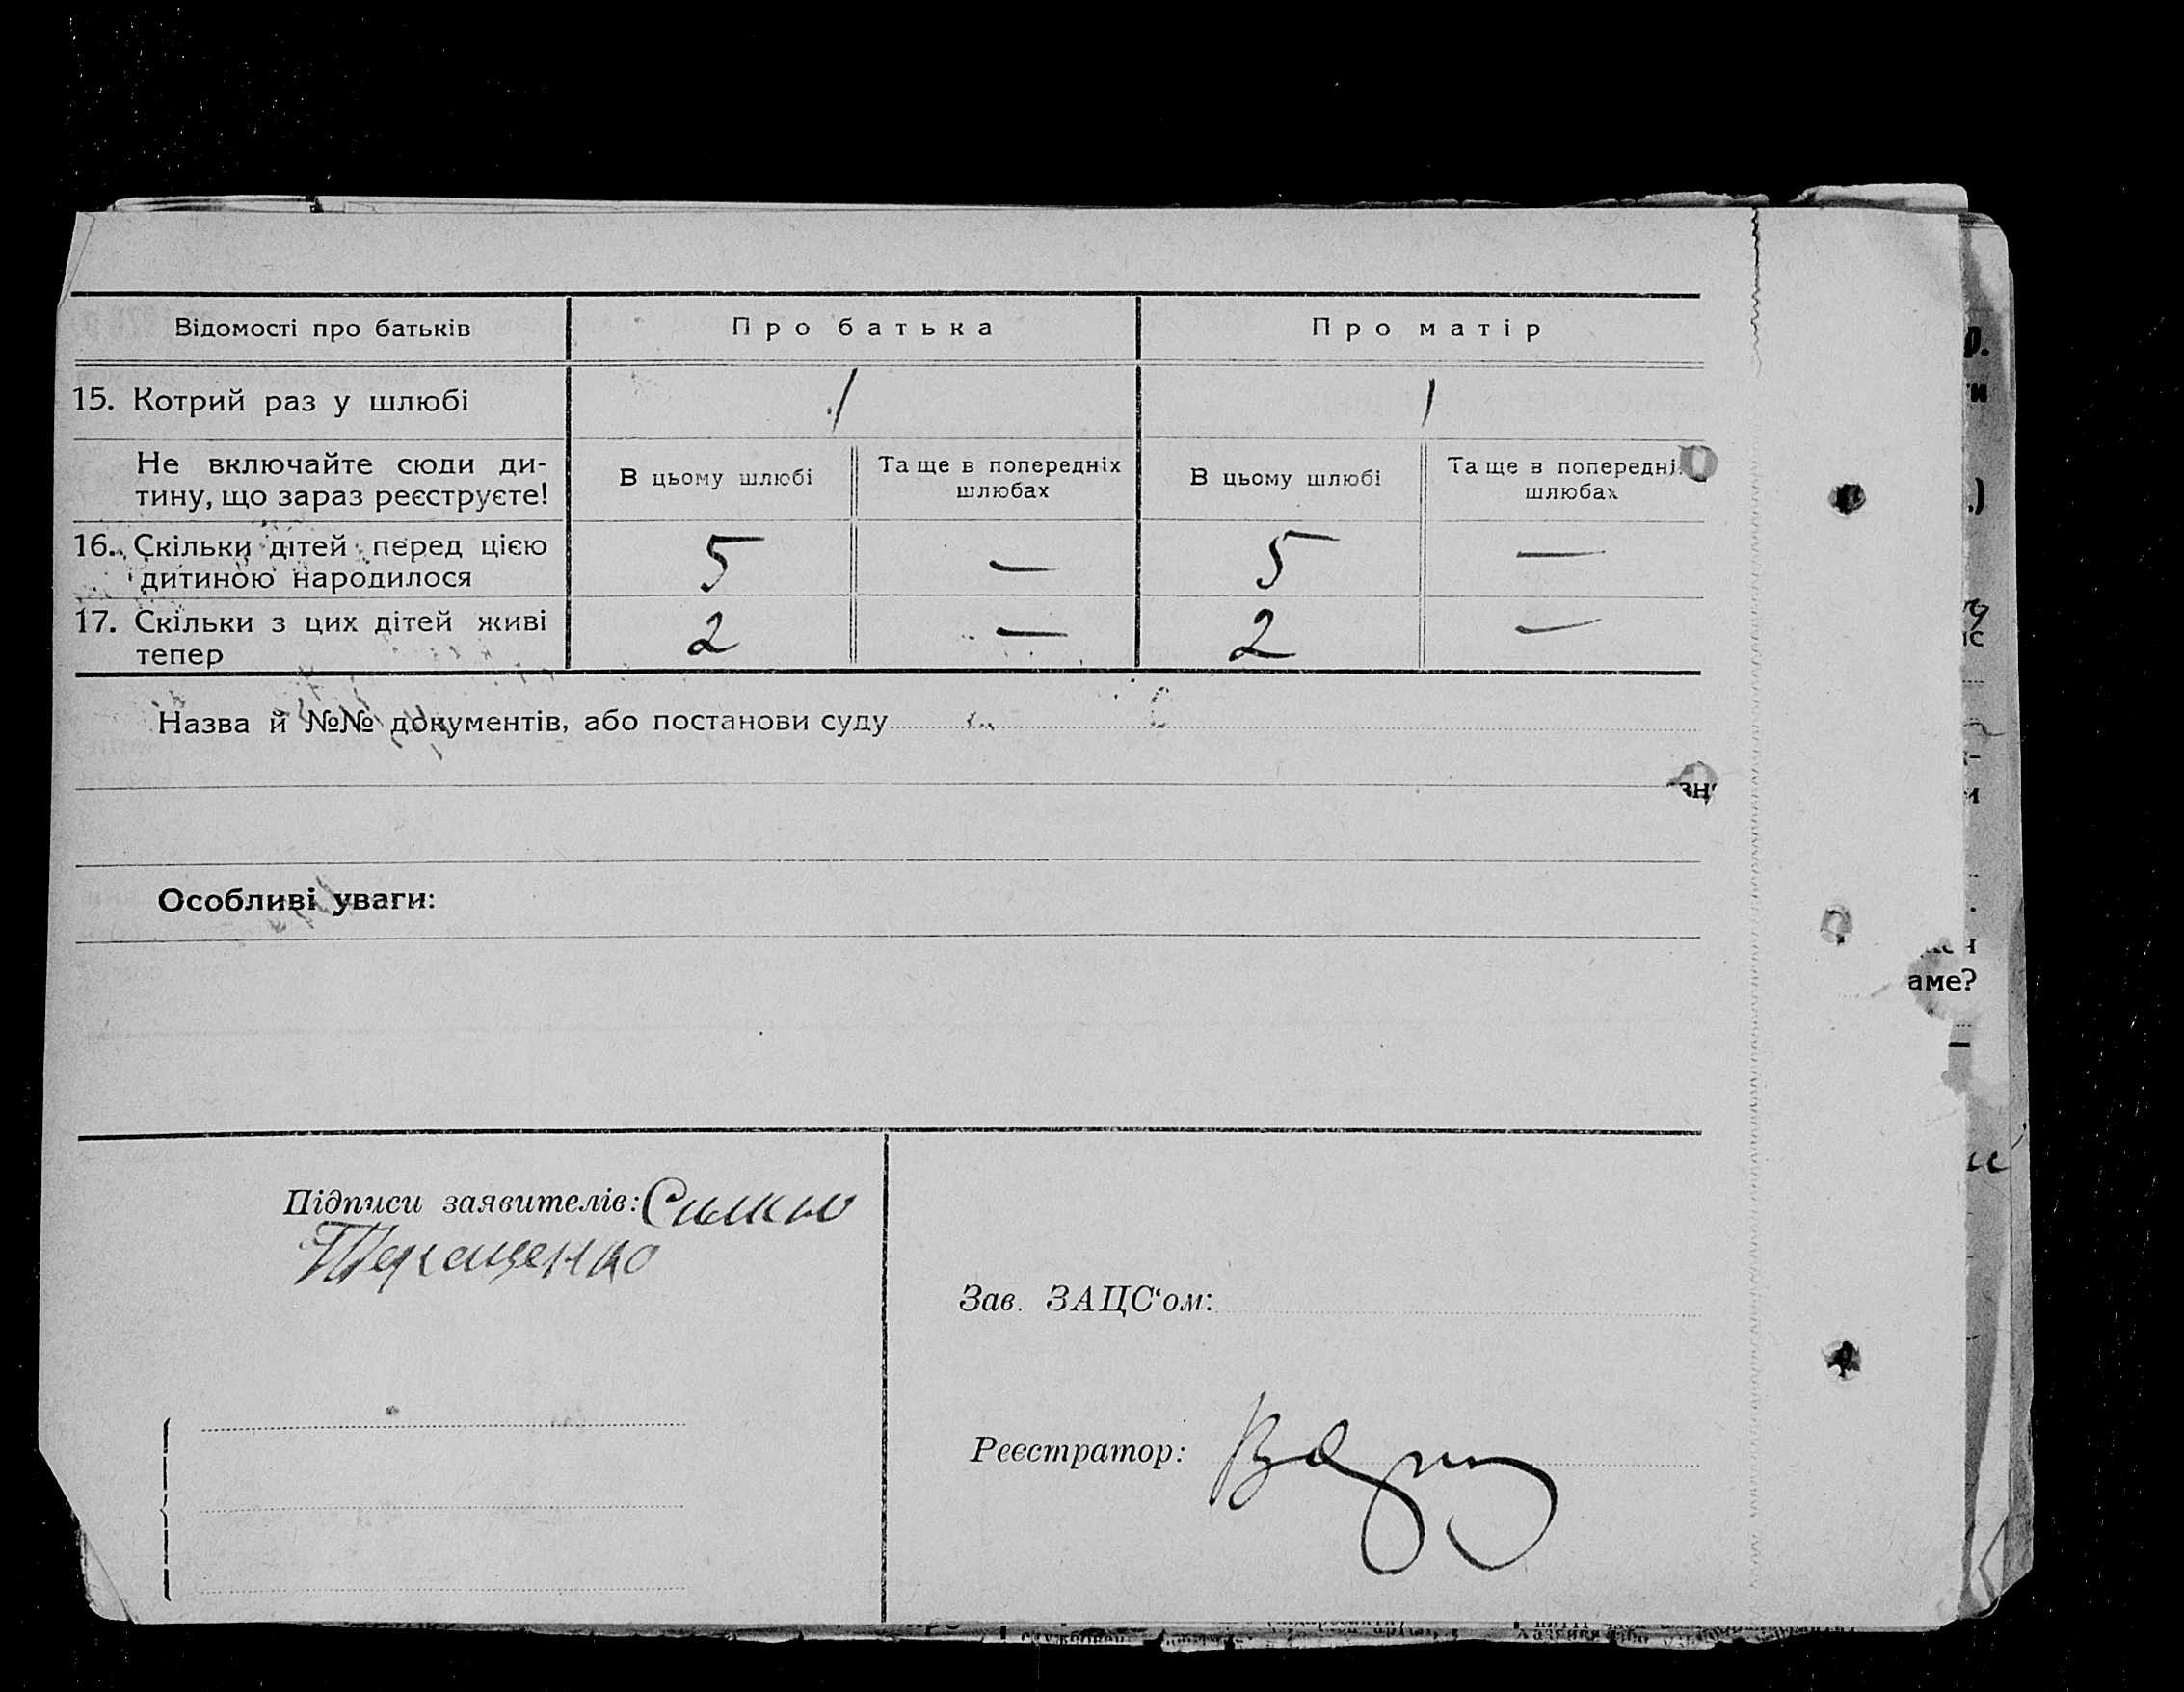 Відомості про батьків
Про батька
Про матір
15. Котрий раз у шлюбі
1
1
Не включайте сюди ди-
тину, що зараз реєструєте!
В цьому шлюбі
Та ще в попередніх
шлюбах
В цьому шлюбі
Та ще в попередні
шлюбах
16. Скільки дітей перед цією
дитиною народилося
5
—
5
—
17. Скільки з цих дітей живі
тепер
2
—
2
—
Назва й №№ документів, або постанови суду
зн
Особливі уваги:
аме?
Підписи заявителів:
Терещенко
Зав. ЗАЦС‘ом:
Реєстратор: